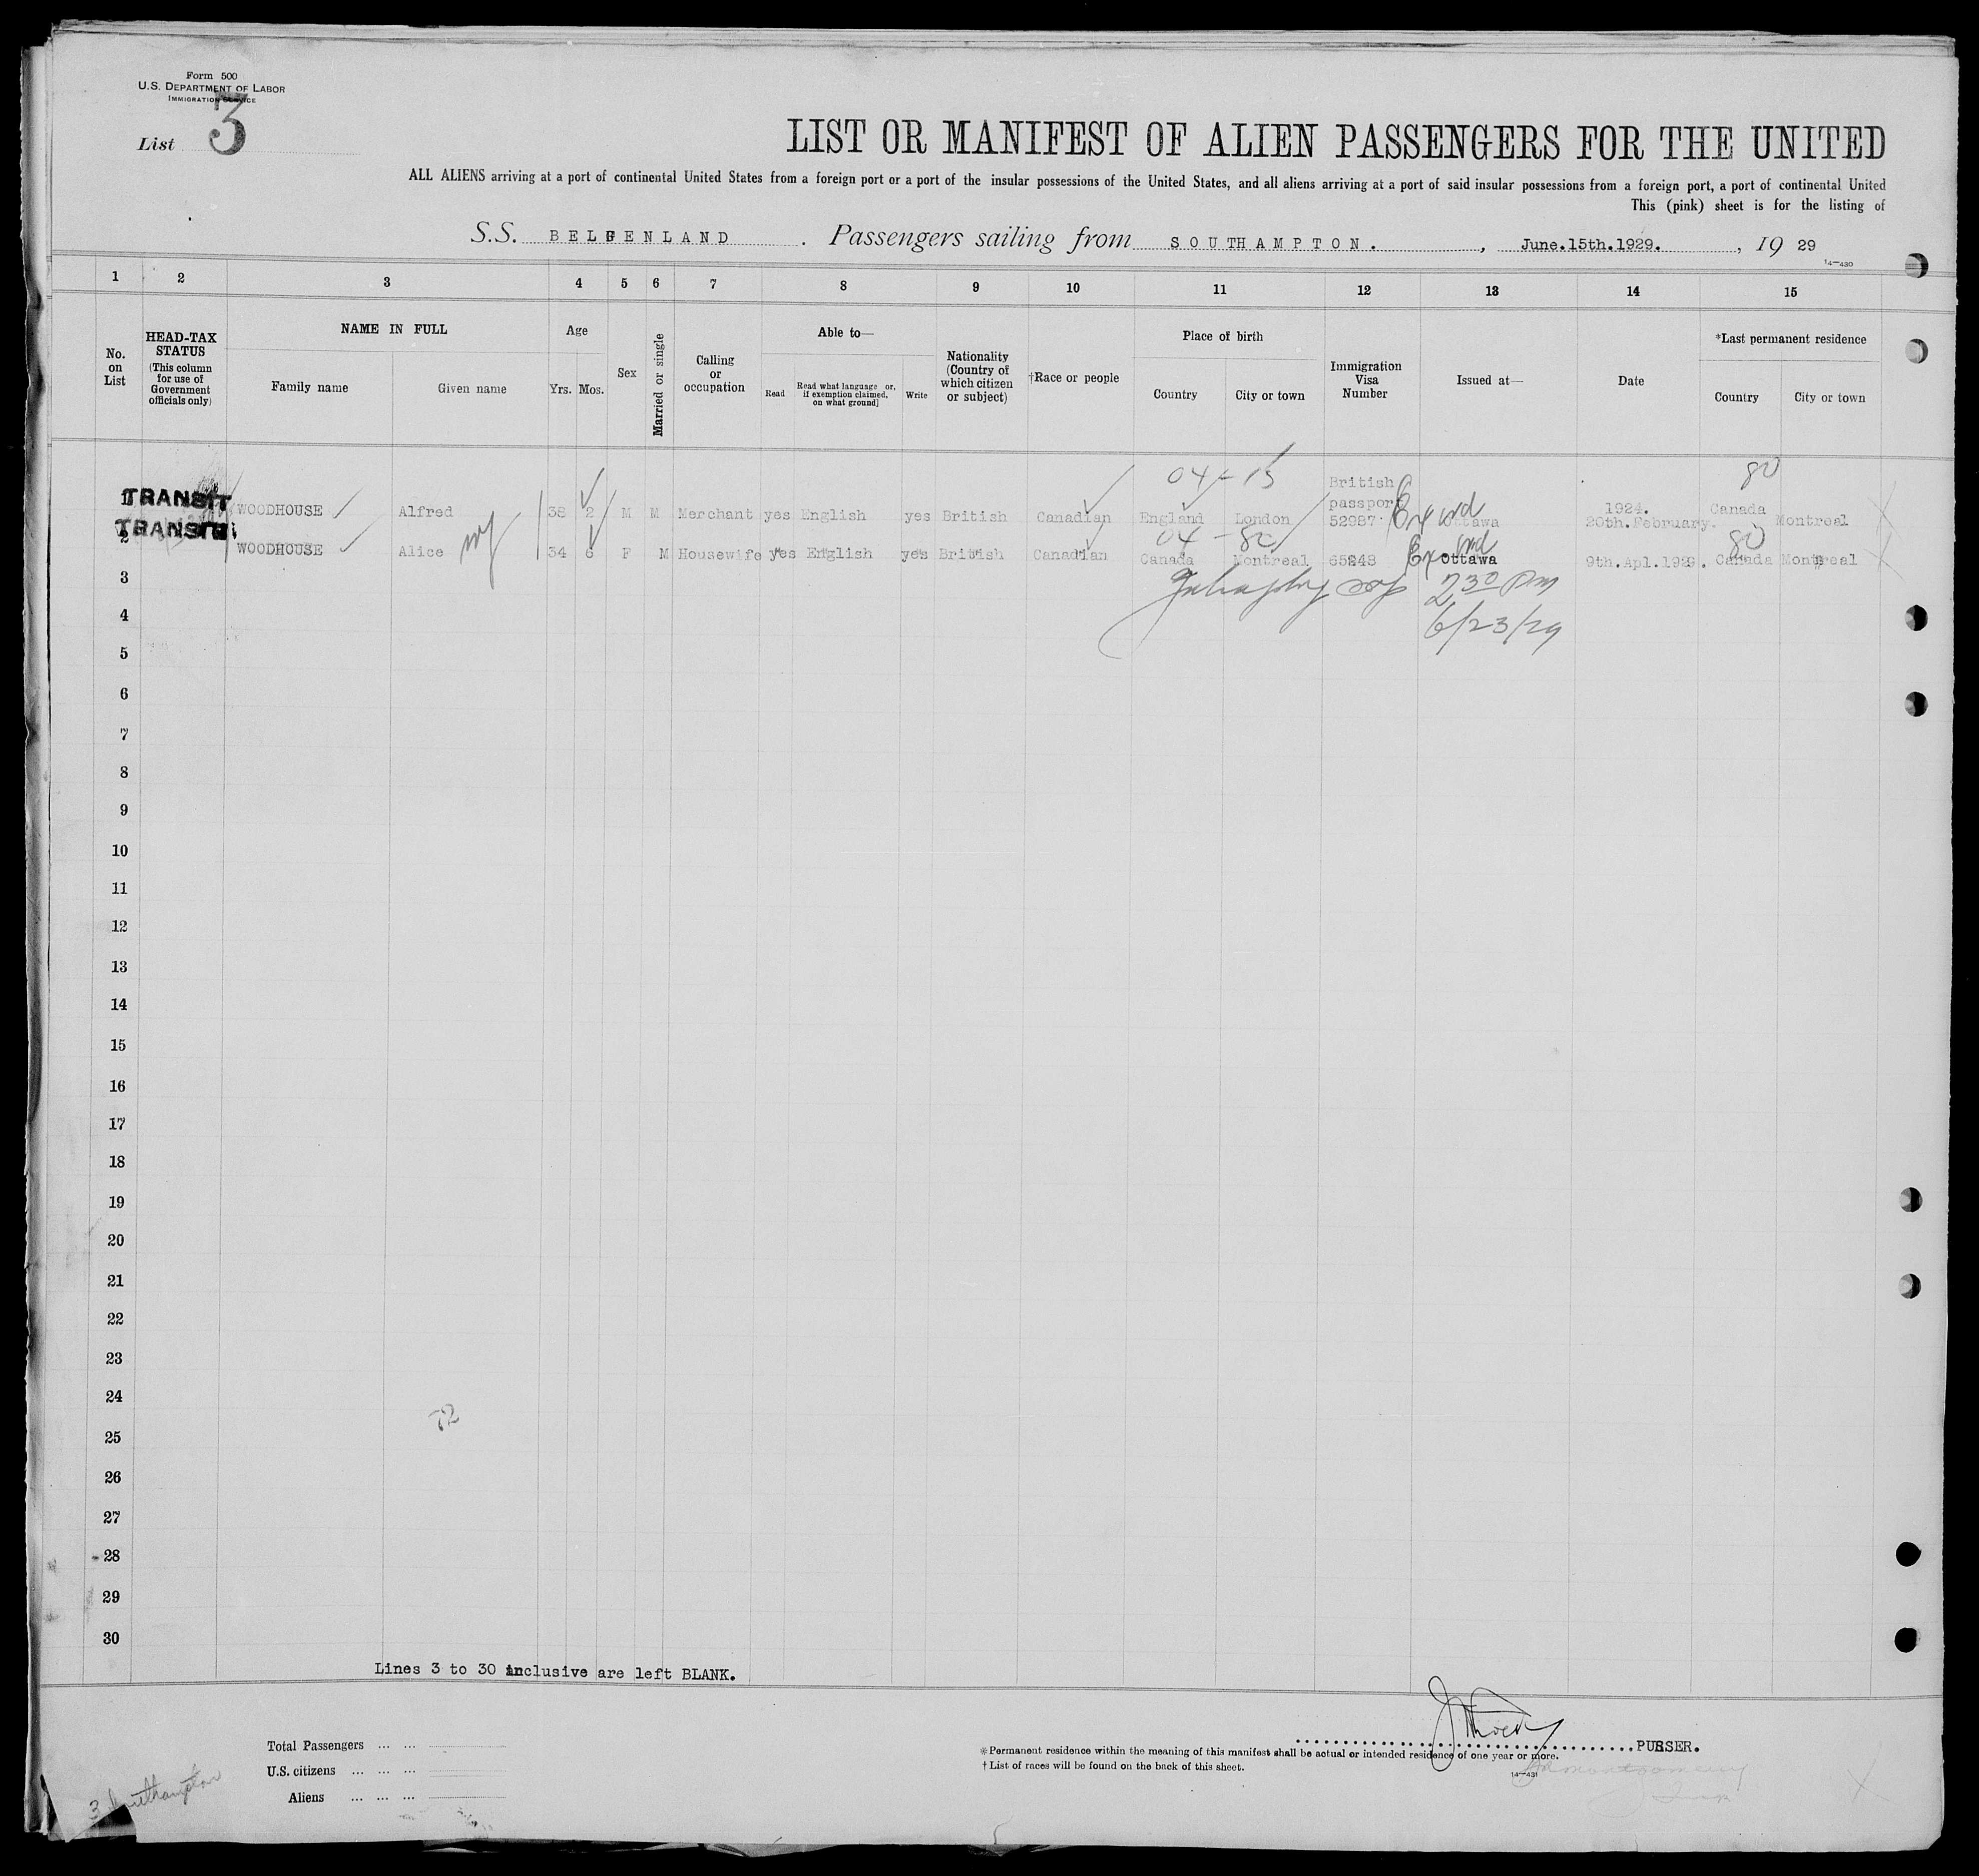 Form 500
U.S. DEPARTMENT OF LABOR
IMMIGRATION SERVICE
List 3
LIST OR MANIFEST OF ALIEN PASSENGERS FOR THE UNITED
ALL ALIENS arriving at a port of continental United States from a foreign port or a port of the insular possessions of the United States, and all aliens arriving at a port of said insular possessions from a foreign port, a port of continental United
This (pink) sheet is for the listing of
S.S. BELGENLAND. Passengers sailing from SOUTHAMPTON., June.15th.1929., 19 29
14—430
1 2 3 4 5 6 7 8 9 10 11 12 13 14 15
No. on List
HEAD-TAX STATUS (This column for use of Government officials only)
NAME IN FULL
Family name
Given name
Age
Yrs. Mos.
Sex
Married or single
Calling or occupation
Able to—
Read
Read what language or, if exemption claimed, on what ground]
Write
Nationality (Country of which citizen or subject)
†Race or people
Place of birth
Country
City or town
Immigration Visa Number
Issued at—
Date
*Last permanent residence
Country
City or town
04 - 15
80
TRANSIT WOODHOUSE Alfred 38 2 M M Merchant yes English yes British Canadian England London British passport 52987 Ottawa 1924. 20th.February. Canada Montreal
04 - 80
80
TRANSIT
2 WOODHOUSE Alice 34 6 F M Housewife yes English yes British Canadian Canada Montreal 65243 Ottawa 9th.Apl.1929. Canada Montreal
3
2 30 Pm
4
6/23/29
5
6
7
8
9
10
11
12
13
14
15
16
17
18
19
20
21
22
23
24
72
25
26
27
28
29
30
Lines 3 to 30 inclusive are left BLANK.
PURSER.
Total Passengers ... ...
U.S. citizens ... ... ...
Aliens ... ... ...
*Permanent residence within the meaning of this manifest shall be actual or intended residence of one year or more.
† List of races will be found on the back of this sheet.
14—431
3 Southampton